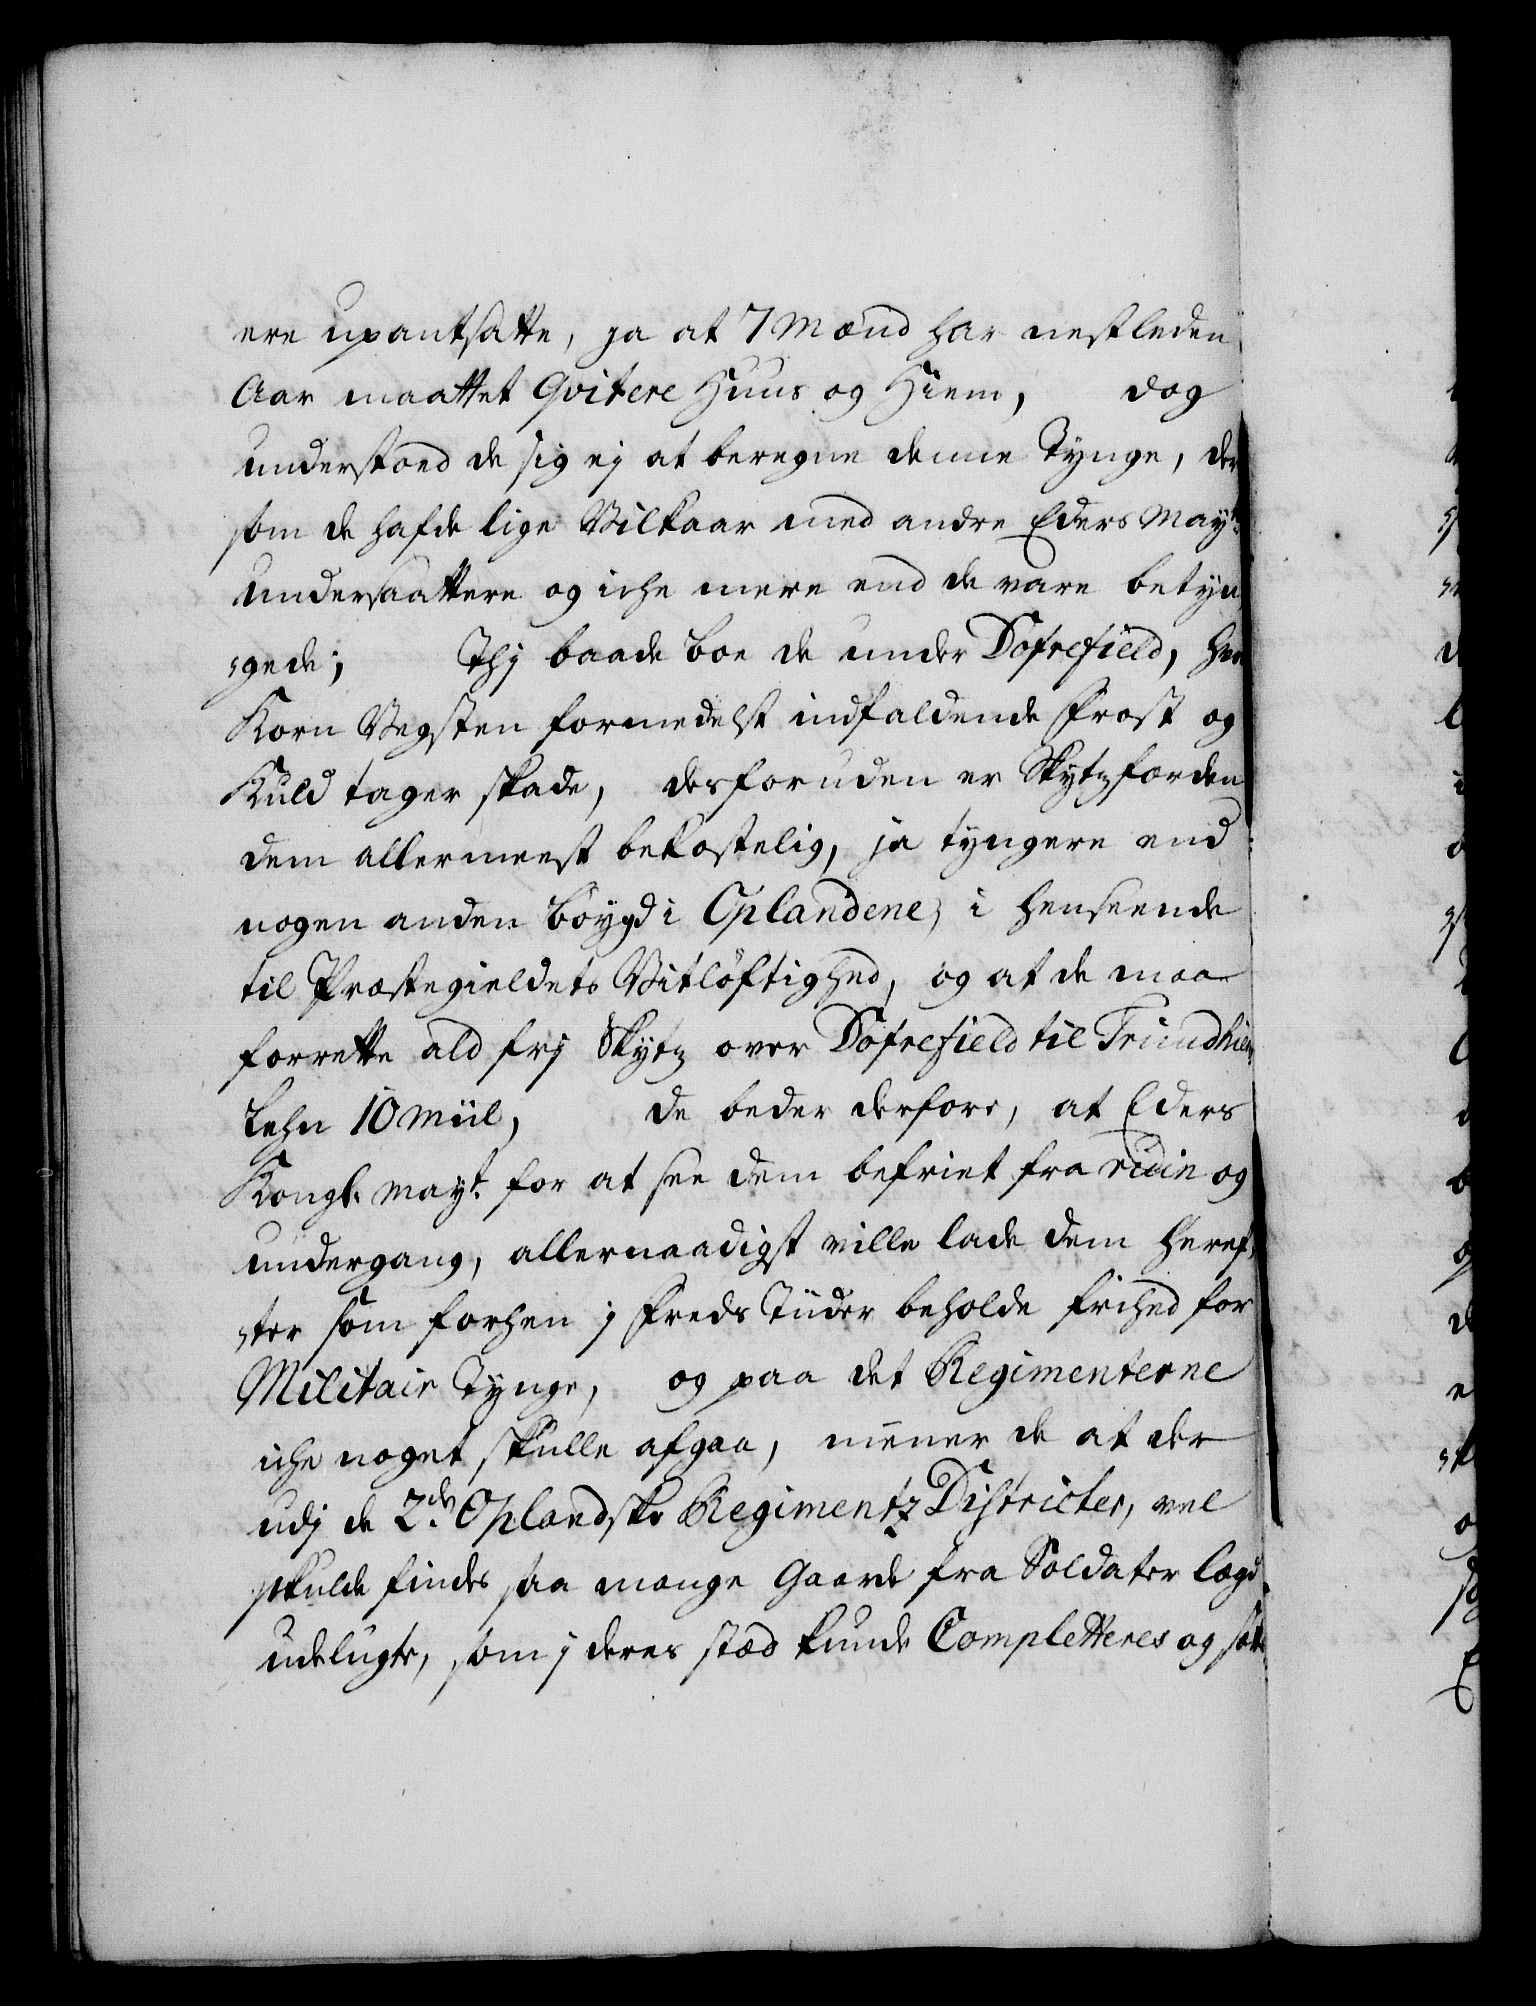 ere upantsatte, ja at 7 Mænd har nestleden
Aar maattet Qvitere Huus og Hiem, dog
understoed de sig ej at beregne denne Tynge, der
som de hafde lige Vilkaar med andre Eders Mayts
undersaattere og iche mere end de vare betyn
gede; Thj baade boe de under Dofrefield, hvor
Korn Vegsten formedelst indfaldende Frost og
Kuld tager skade, desforuden er Skytzfærden
dem allermeest bekostelig, ja tyngere end
nogen anden böygd i Oplandene, i henseende
til Præstegieldets Vitlöftighed, og at de maa
forrette ald frj Skytz over Dofrefield til Trundhiems
Lehn 10 Miil, de beder derfore, at Eders
Kongl. Mayt. for at see dem befriet fra ruin og
undergang, allernaadigst ville lade dem heref
ter som forhen j Freds Tiider beholde frihed for
Militair Tynge, og paa det Regimenterne
iche noget skulle afgaa, mener de at der
udj de 2de Oplandske Regimentz Districter, vel
skulde findes saa mange Gaarde fra Soldater lægd
udelugte, som j deres stæd kunde Completteres og